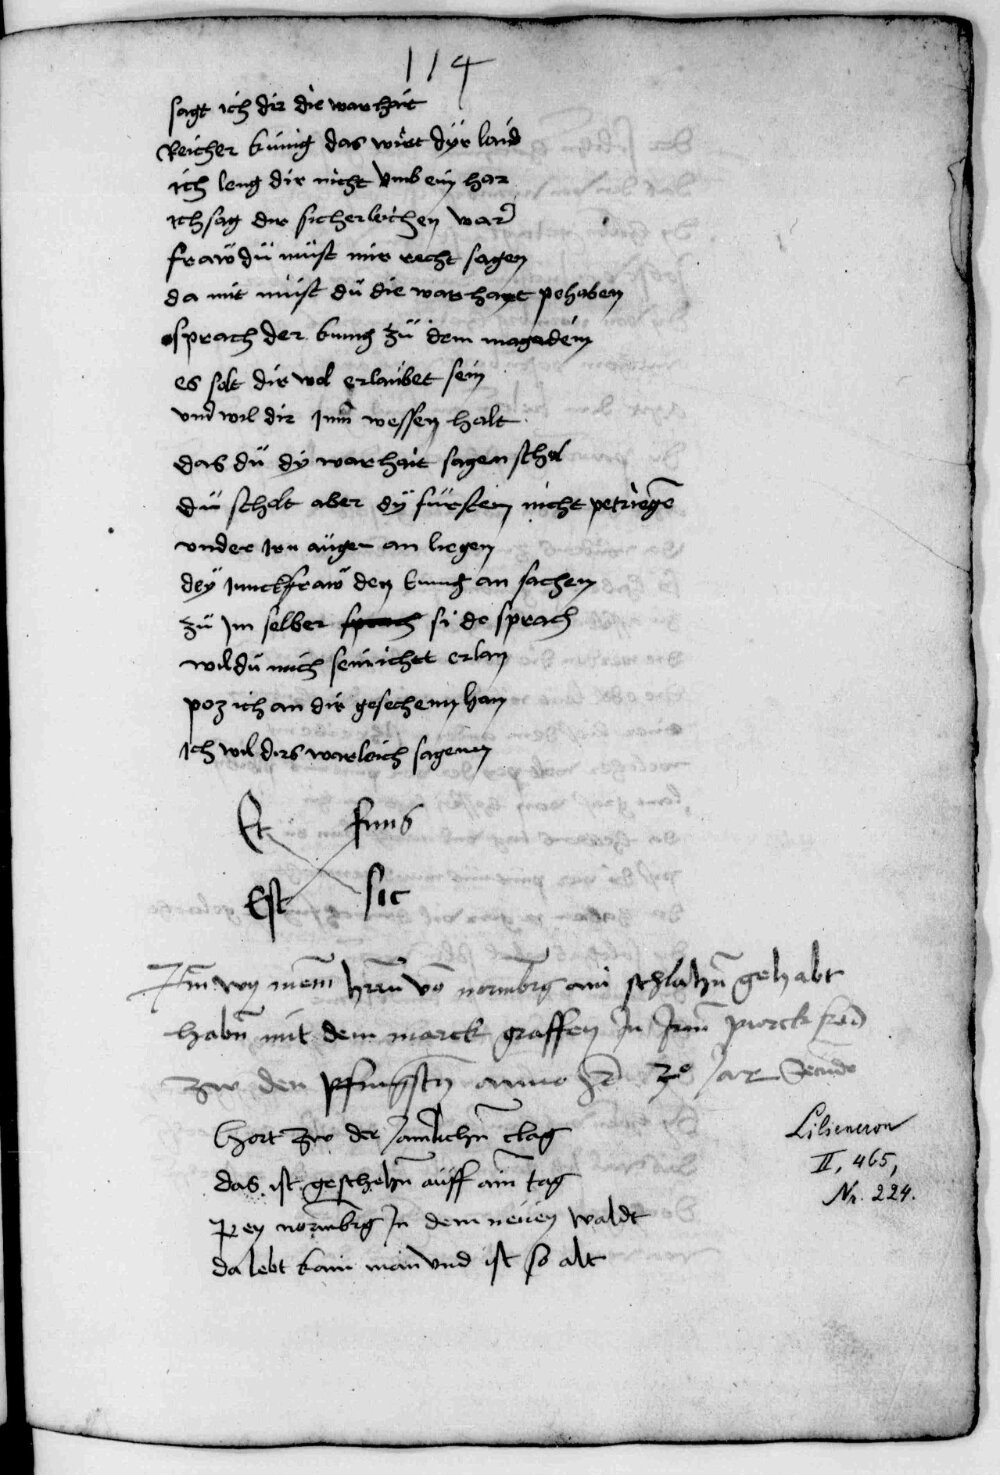 114
sagt ich dir die warhait
Reicher künig das wirt dyr laid
ich leug dir nicht vmb ein har
ich sag dir sicherleichen war
fraw dü müst mir recht sagen
da mit müst dü die warhayt pehaben
sprach der kunig zü dem magedein
es solt dir wol erlaubet sein
vnd wil dir wessen halt
das dü dy warhait sagen scholt
dü scholt aber dÿ fürsten nicht petriegē
vnder irn augen an liegen
deÿ Junckfraw den kunig an sachen
zü Im selber sprach si do sprach
wildu mich sein nicht erlan
poz ich an dir gesechenn han
Ich wil dirs warleich sagenn
Et finis
Est sic
wy vō normbrg ain schlahn̄ gehabt
habn̄ mit dem marck graffen In Irm̄
zw den pfingstn̄ anno Jar
Hort zw der Jamlichn̄ clag
das ist geschehn̄ auff ain tag
pey normbrg In dem neuen waldt
da lebt kain man vnd ist so alt
Liliencron
II, 465,
Nr. 224.